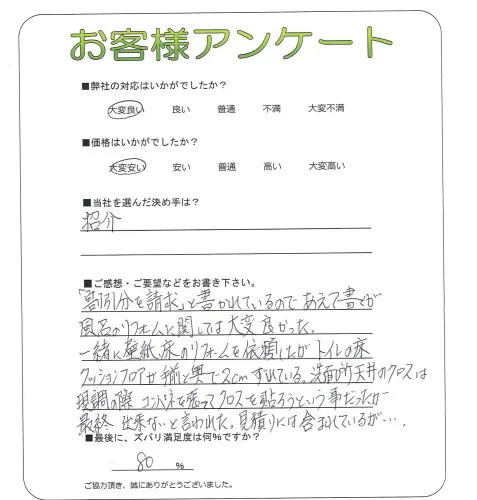 お客様アンケート
■弊社の対応はいかがでしたか？
大変良い 良い 普通 不満 大変不満
■価格はいかがでしたか？
大変安い 安い 普通 高い 大変高い
■当社を選んだ決め手は？
紹介
■ご感想・ご要望などをお書き下さい。
「割引分を請求」と書かれているのであえて書くが
風呂のリフォームに関しては大変良かった。
一緒に壁紙、床のリフォームを依頼したがトイレの床
クッションフロアが 手前と奥で2cmずれている。洗面所天井のクロスは
現調の際 コンパネを張ってクロスを貼ろうという事だったが
最終 出来ないと言われた。見積りには含まれているが…。
■最後に、ズバリ満足度は何%ですか？
80 %
ご協力頂き、誠にありがとうございました。